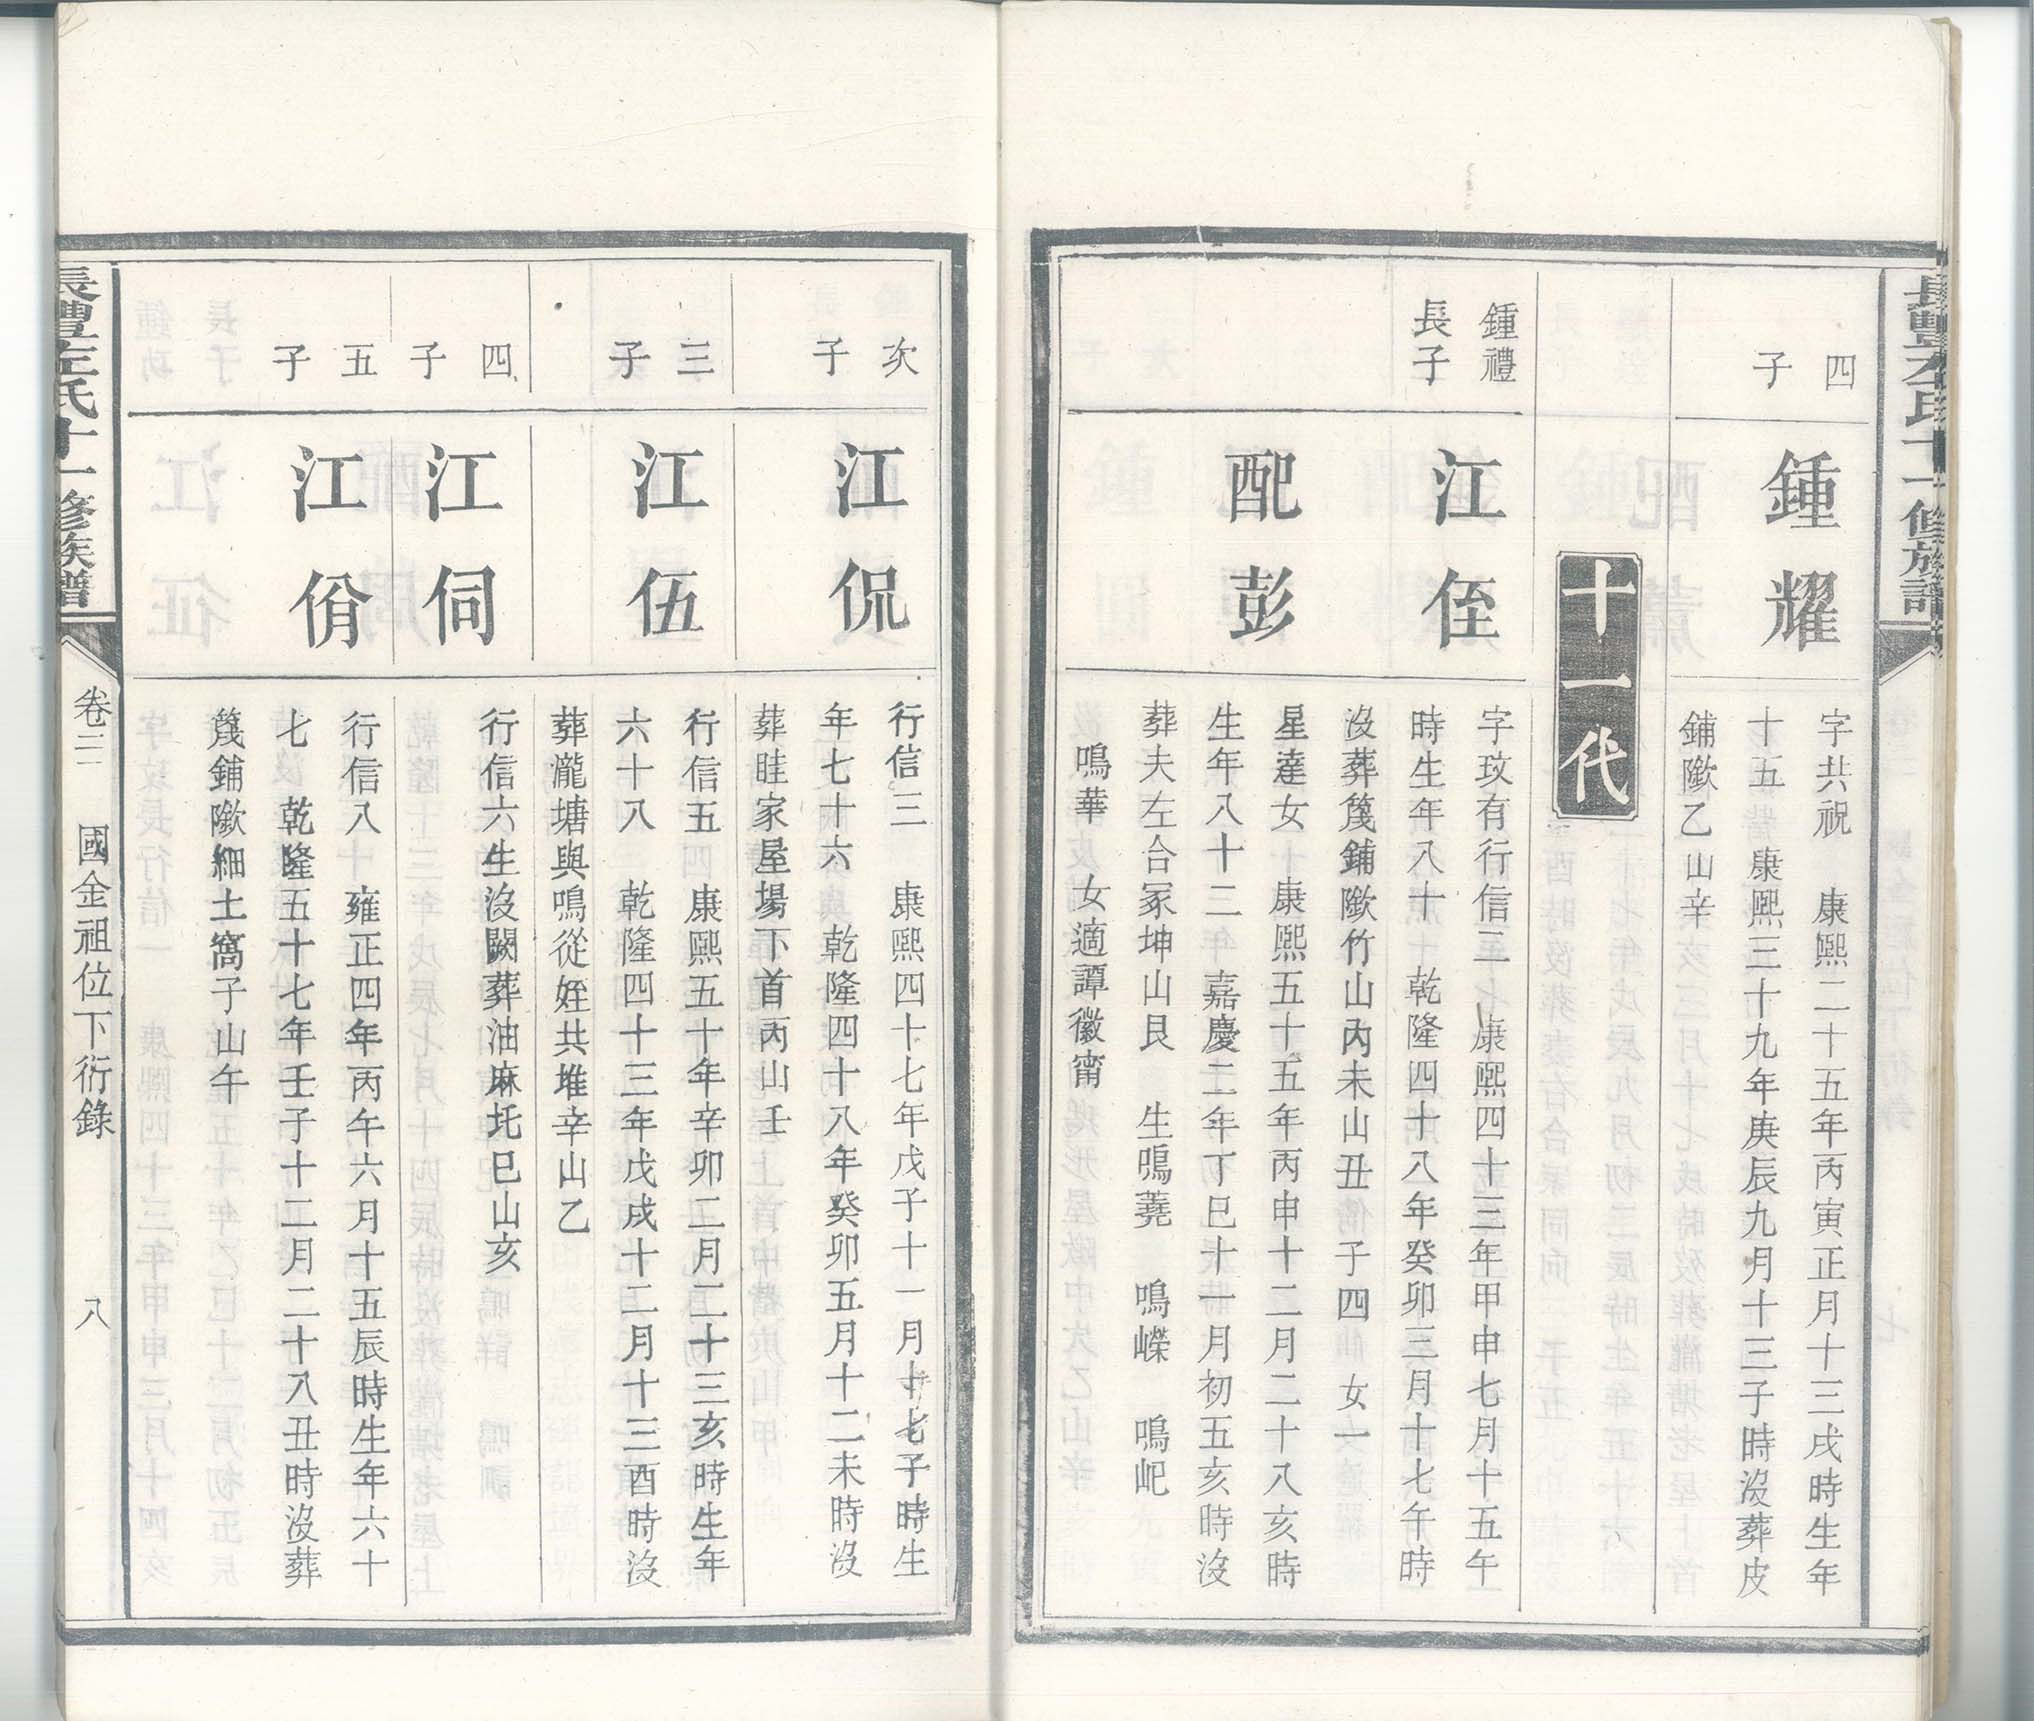 長豐左氏十一修族譜
四
子
鍾耀
字共祝 康熙二十五年丙寅正月十三戌時生年
十五 康熙三十九年庚辰九月十三子時沒葬皮
鋪隊乙山辛
十一代
鍾禮
長子
江侄
字玟有行信二 康熙四十三年甲申七月十五午
時生年八十 乾隆四十八年癸卯三月十七午時
沒葬篾鋪隊竹山內未山丑 子四 女一
配彭
星達女 康熙五十五年丙申十二月二十八亥時
生年八十二年 嘉慶二年丁巳十一月初五亥時沒
葬夫左合冢坤山艮 生鳴蕘 鳴嶸 鳴屺
鳴華 女適譚徽甯
次
子
江侃
行信三 康熙四十七年戊子十一月十七子時生
年七十六 乾隆四十八年癸卯五月十二未時沒
葬畦家屋場下首丙山壬
三
子
江伍
行信五 康熙五十年辛卯二月二十三亥時生年
六十八 乾隆四十三年戊戌十二月十三酉時沒
葬瀧塘與鳴從姪共堆辛山乙
四
子
江伺
行信六生沒闕葬油麻圫巳山亥
五
子
江佾
行信八 雍正四年丙午六月十五辰時生年六十
七 乾隆五十七年壬子十二月二十八丑時沒葬
篾鋪隊細土窩子山午
長豐左氏十一修族譜
卷三 國金祖位下衍錄 八